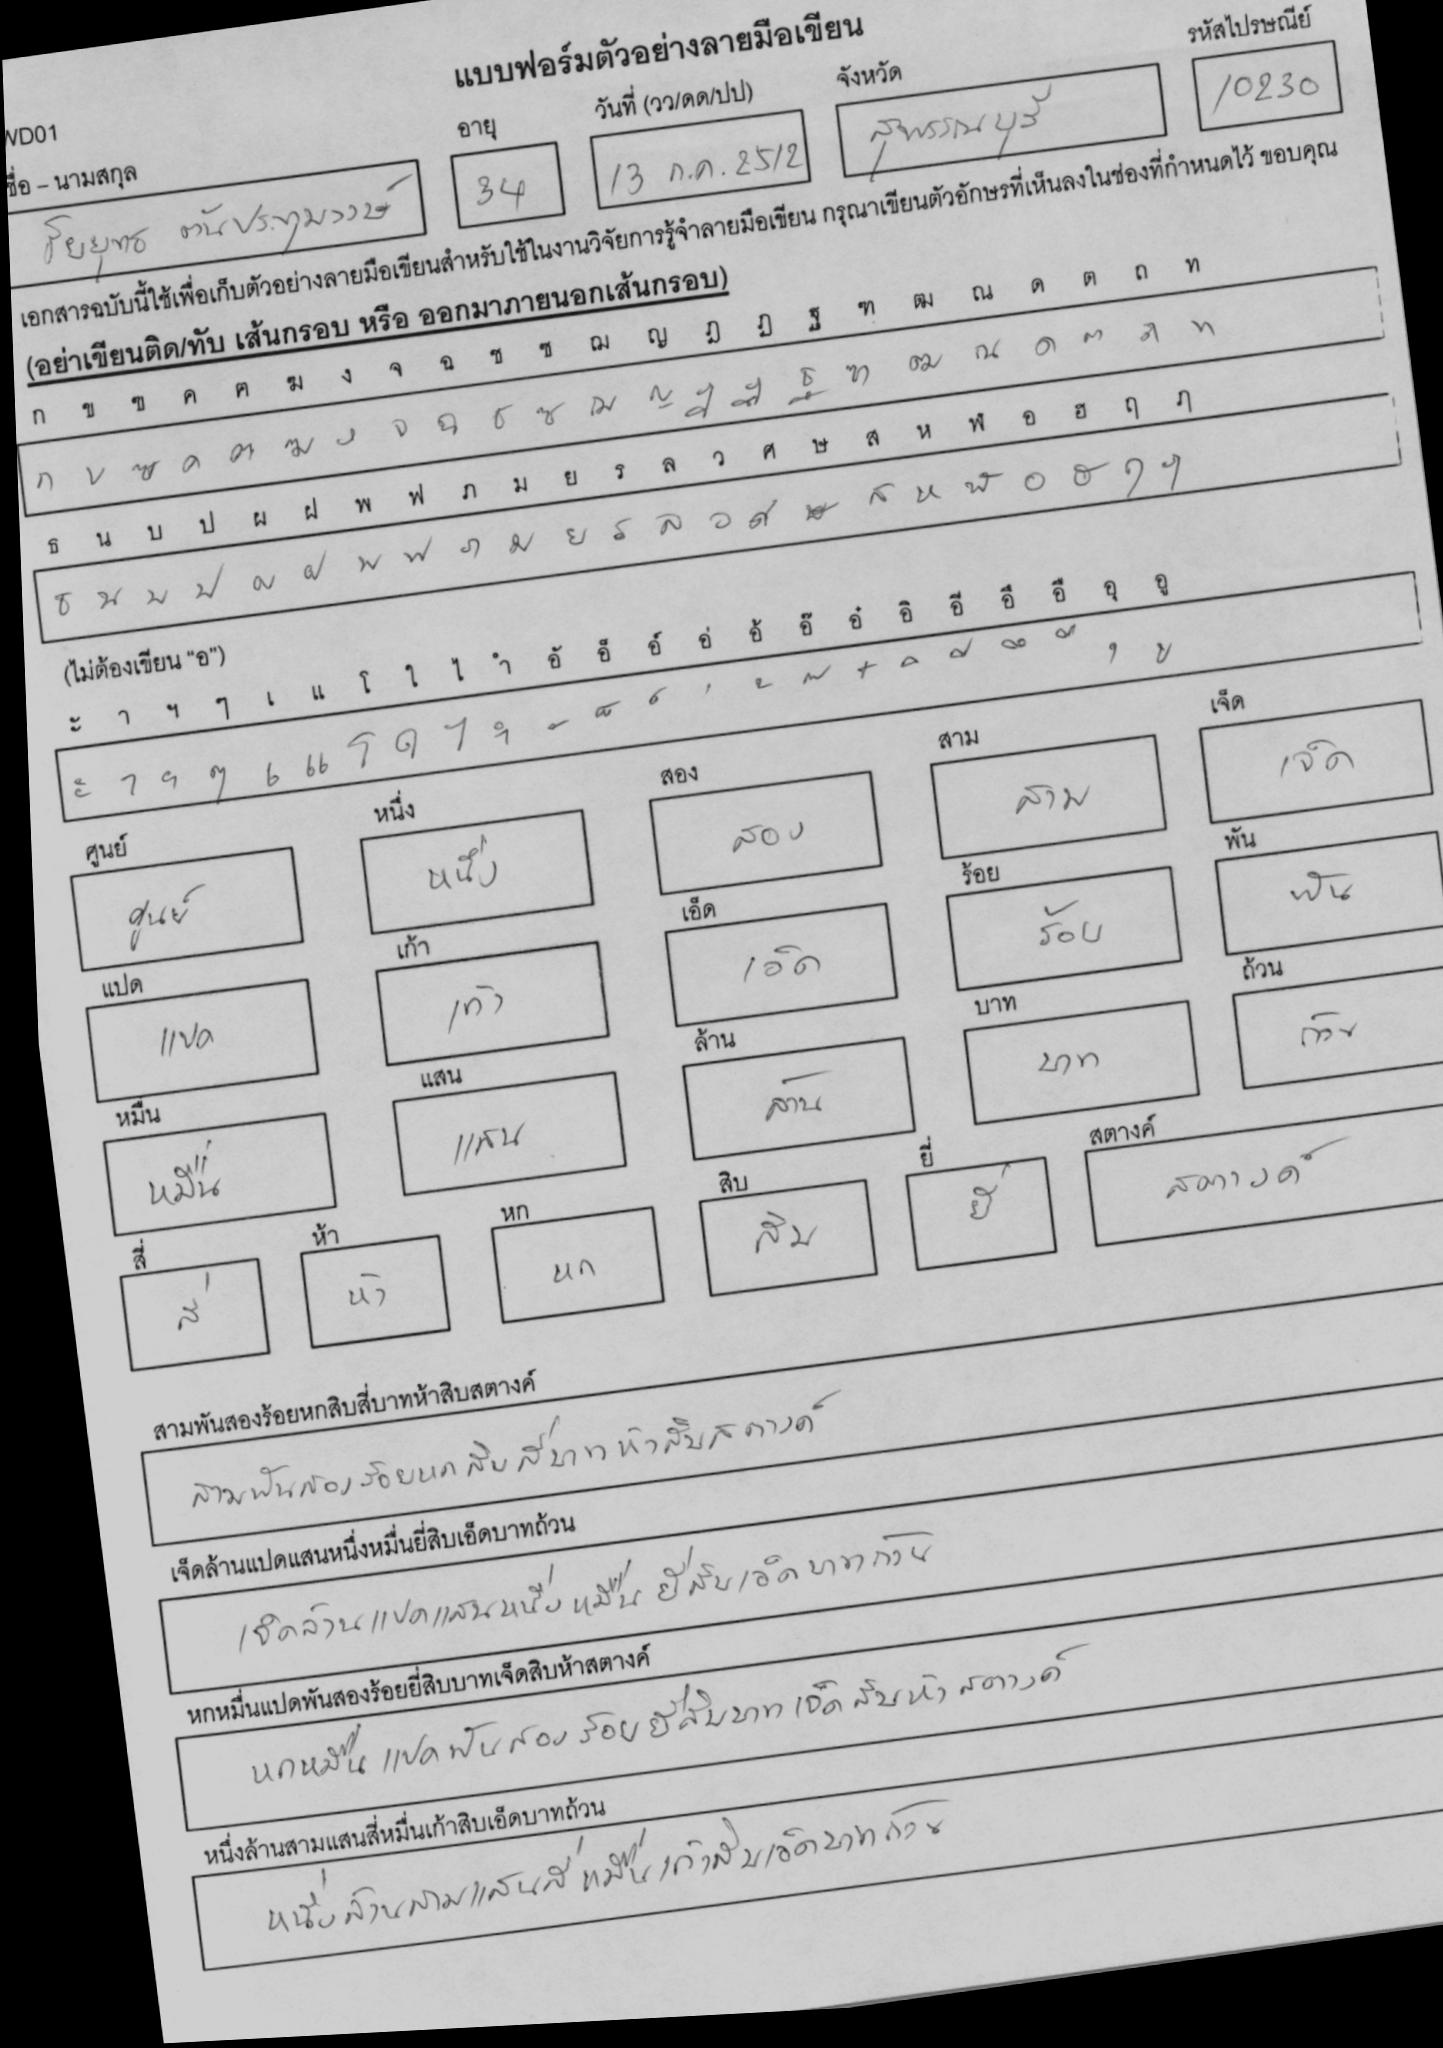 แบบฟอร์มตัวอย่างลายมือเขียน
WD01
ชื่อ – นามสกุล อายุ วันที่ (วว/ดด/ปป) จังหวัด รหัสไปรษณีย์
34 13 ก.ค. 2512 สุพรรณบุรี 10230
เอกสารฉบับนี้ใช้เพื่อเก็บตัวอย่างลายมือเขียนสำหรับใช้ในงานวิจัยการรู้จำลายมือเขียน กรุณาเขียนตัวอักษรที่เห็นลงในช่องที่กำหนดไว้ ขอบคุณ
(อย่าเขียนติด/ทับ เส้นกรอบ หรือ ออกมาภายนอกเส้นกรอบ)
ก ข ฃ ค ฅ ฆ ง จ ฉ ช ซ ฌ ญ ฎ ฏ ฐ ฑ ฒ ณ ด ต ถ ท
ก ข ฃ ค ฅ ฆ ง จ ฉ ช ซ ฌ ญ ฎ ฏ ฐ ฑ ฒ ณ ด ต ถ ท
ธ น บ ป ผ ฝ พ ฟ ภ ม ย ร ล ว ศ ษ ส ห ฬ อ ฮ ฤ ฦ
ธ น บ ป ผ ฝ พ ฟ ภ ม ย ร ล ว ศ ษ ส ห ฬ อ ฮ ฤ ฦ
(ไม่ต้องเขียน “อ”)
ะ า ฯ ๆ เ แ โ ใ ไ ำ อั อ็ อ์ อ่ อ้ อ๊ อ๋ อิ อี อึ อื อุ อู
ะ า ฯ ๆ เ แ โ ใ ไ ำ ั ็ ์ ่ ้ ๊ ๋ ิ ี ึ ื ุ ู
ศูนย์ หนึ่ง สอง สาม เจ็ด
ศูนย์ หนึ่ง สอง สาม เจ็ด
แปด เก้า เอ็ด ร้อย พัน
แปด เก้า เอ็ด ร้อย พัน
หมื่น แสน ล้าน บาท ถ้วน
หมื่น แสน ล้าน บาท ถ้วน
สี่ ห้า หก สิบ ยี่ สตางค์
สี่ ห้า หก สิบ ยี่ สตางค์
สามพันสองร้อยหกสิบสี่บาทห้าสิบสตางค์
สามพันสองร้อยหกสิบสี่บาทห้าสิบสตางค์
เจ็ดล้านแปดแสนหนึ่งหมื่นยี่สิบเอ็ดบาทถ้วน
เจ็ดล้านแปดแสนหนึ่งหมื่นยี่สิบเอ็ดบาทถ้วน
หกหมื่นแปดพันสองร้อยยี่สิบบาทเจ็ดสิบห้าสตางค์
หกหมื่นแปดพันสองร้อยยี่สิบบาทเจ็ดสิบห้าสตางค์
หนึ่งล้านสามแสนสี่หมื่นเก้าสิบเอ็ดบาทถ้วน
หนึ่งล้านสามแสนสี่หมื่นเก้าสิบเอ็ดบาทถ้วน